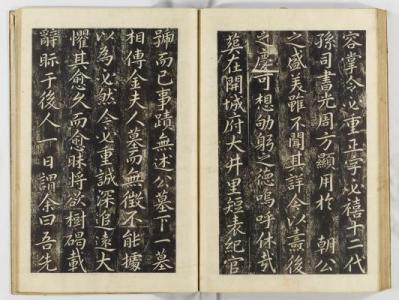 容掌令必重正字必禧十二代
孫司書光周方顯用於 朝公
之盛美雖不聞其詳今以燾後
之慶可想劬躬之德嗚呼休哉
塟在開城府大井里短表紀官
號而已事蹟無述公墓下一墓
相傳金夫人墓而無徵不能據
以為必然今必重誠深追遠大
懼其愈久而愈昧將欲樹碣載
辭眎於後人一日謂余曰吾先